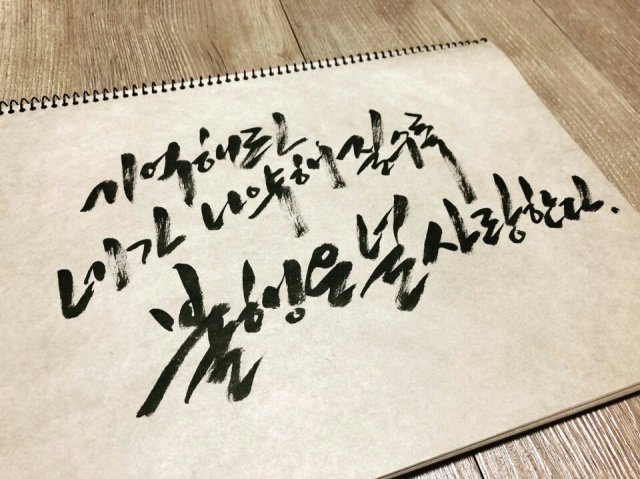 기억해라
네가 나약해질수록
불행은 널 사랑한다.